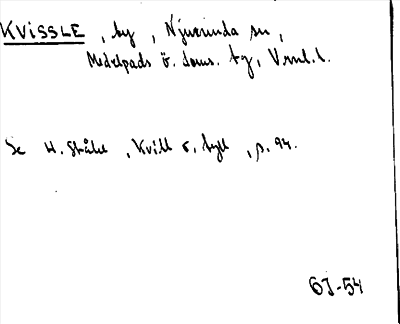 KVISSLE, by, Njurunda sn,
Medelpads ö. doms. tg, Vrml. l.
Se H. Ståhle, Kvill o. tyll, p. 94.
6J-54